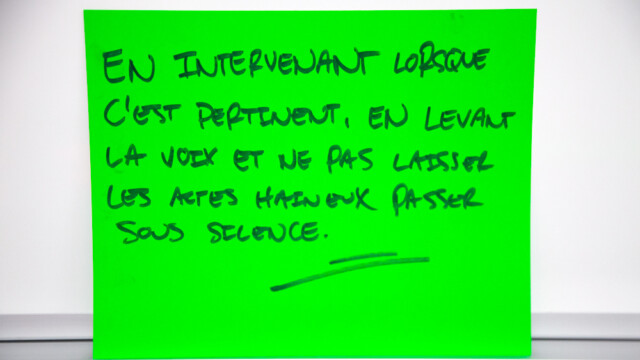 EN INTERVENANT LORSQUE
C'EST PERTINENT, EN LEVANT
LA VOIX ET NE PAS LAISSER
LES ACTES HAINEUX PASSER
SOUS SILENCE.